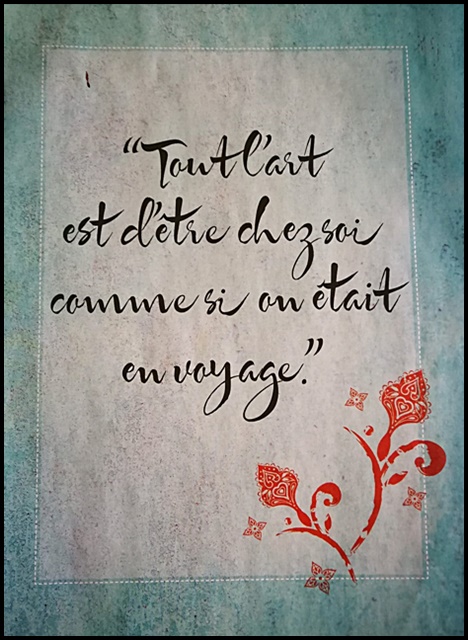 “Tout l'art
est d'être chez soi
comme si on était
en voyage.”